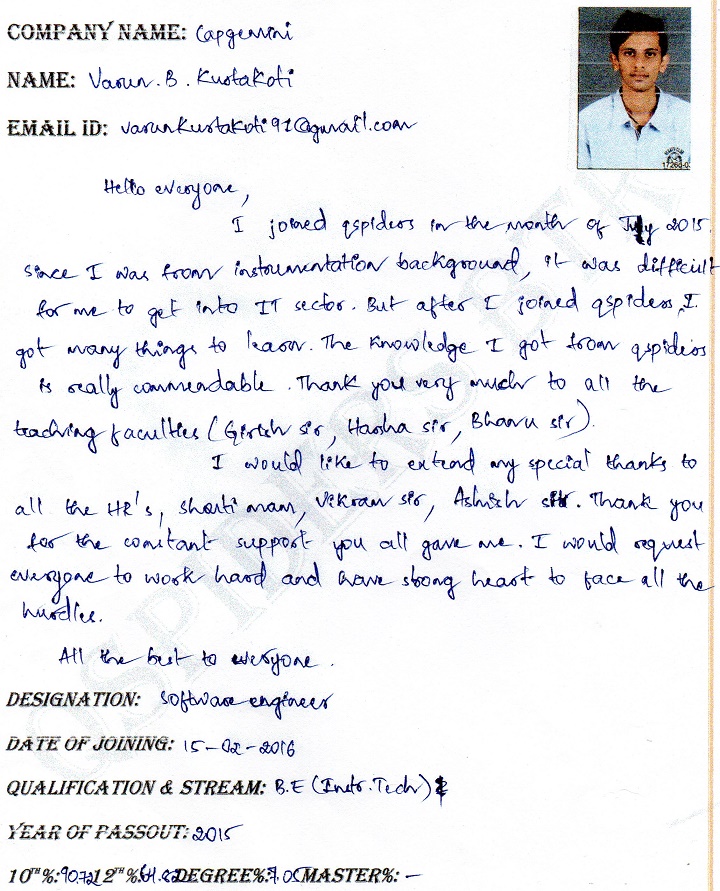 COMPANY NAME: Capgemini
NAME: Varun. B. Kustakoti
EMAIL ID: varunkustakoti91@gmail.com
Hello everyone,
I joined qspiders in the month of July 2015.
Since I was from instrumentation background, it was difficult
for me to get into IT sector. But after I joined qspiders, I
got many things to learn. The knowledge I got from qspiders
is really commendable. Thank you very much to all the
teaching faculties (Girish sir, Harsha sir, Bhanu sir).
I would like to extend my special thanks to
all the HR's, mam, Vikram sir, Ashish sir. Thank you
for the constant support you all gave me. I would request
everyone to work hard and have strong heart to face all the
hurdles.
All the best to everyone.
DESIGNATION: Software engineer
DATE OF JOINING: 15-02-2016
QUALIFICATION & STREAM: B.E (Instr. Tech)
YEAR OF PASSOUT: 2015
10TH%: 90.72 12TH%: DEGREE%: 7.05 MASTER%: -
QSPIDERS BTR
17260-0